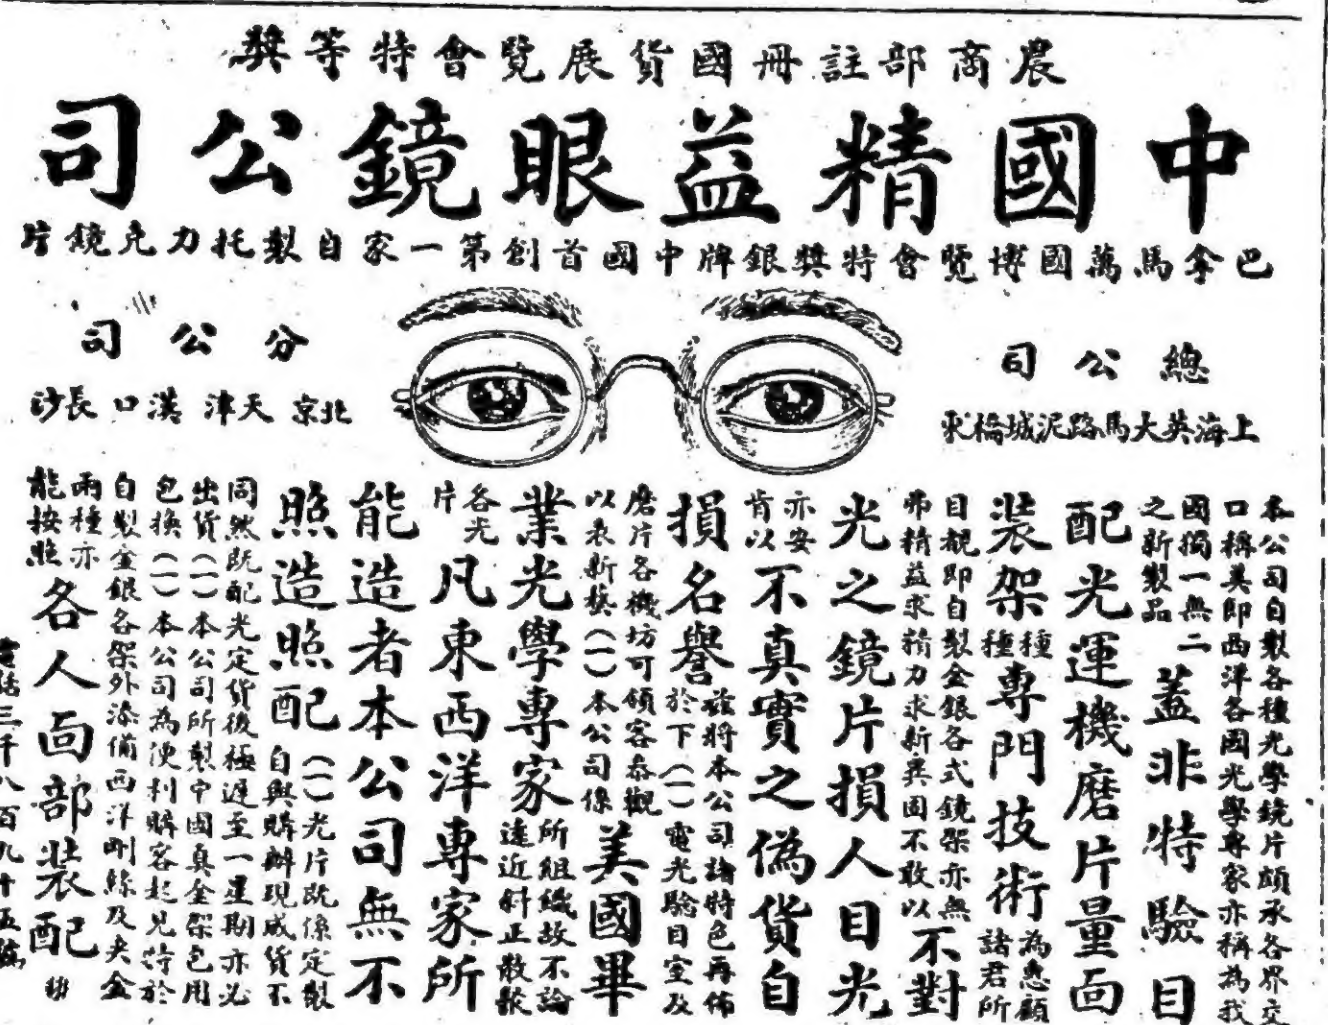 農商部註冊國貨展覽會特等獎
中國精益眼鏡公司
巴拿馬萬國博覽會特獎銀牌中國首創第一家自製托力克鏡片
總公司
上海英大馬路泥城橋東
分公司
北京 天津 漢口 長沙
本公司自製各種光學鏡片頗承各界交
口稱美即西洋各國光學專家亦稱為我
國獨一無二
之新製品
蓋非特驗目
配光運機磨片量面
裝架種種專門技術為惠顧諸君所
目覩即自製金銀各式鏡架亦無
弗精益求精力求新異固不敢以不對
光之鏡片損人目光
亦安
肯以
不真實之偽貨自
損名譽茲將本公司諸特色再佈
於下(一)電光驗目室及
磨片各機坊可領客參觀
以表新藝(一)本公司係美國畢
業光學專家所組織故不論
遠近斜正散
各光
片
凡東西洋專家所
能造者本公司無不
照造照配(一)光片既係定製
自與購辦現成貨不
同然既配光定貨後極遲至一星期亦必
出貨(一)本公司所製中國真金架包用
包換(一)本公司為便利購客起見特於
自製金銀各架外添備西洋剛絲及夾金
兩種亦
能按照
各人面部裝配
電話三千八百九十五號